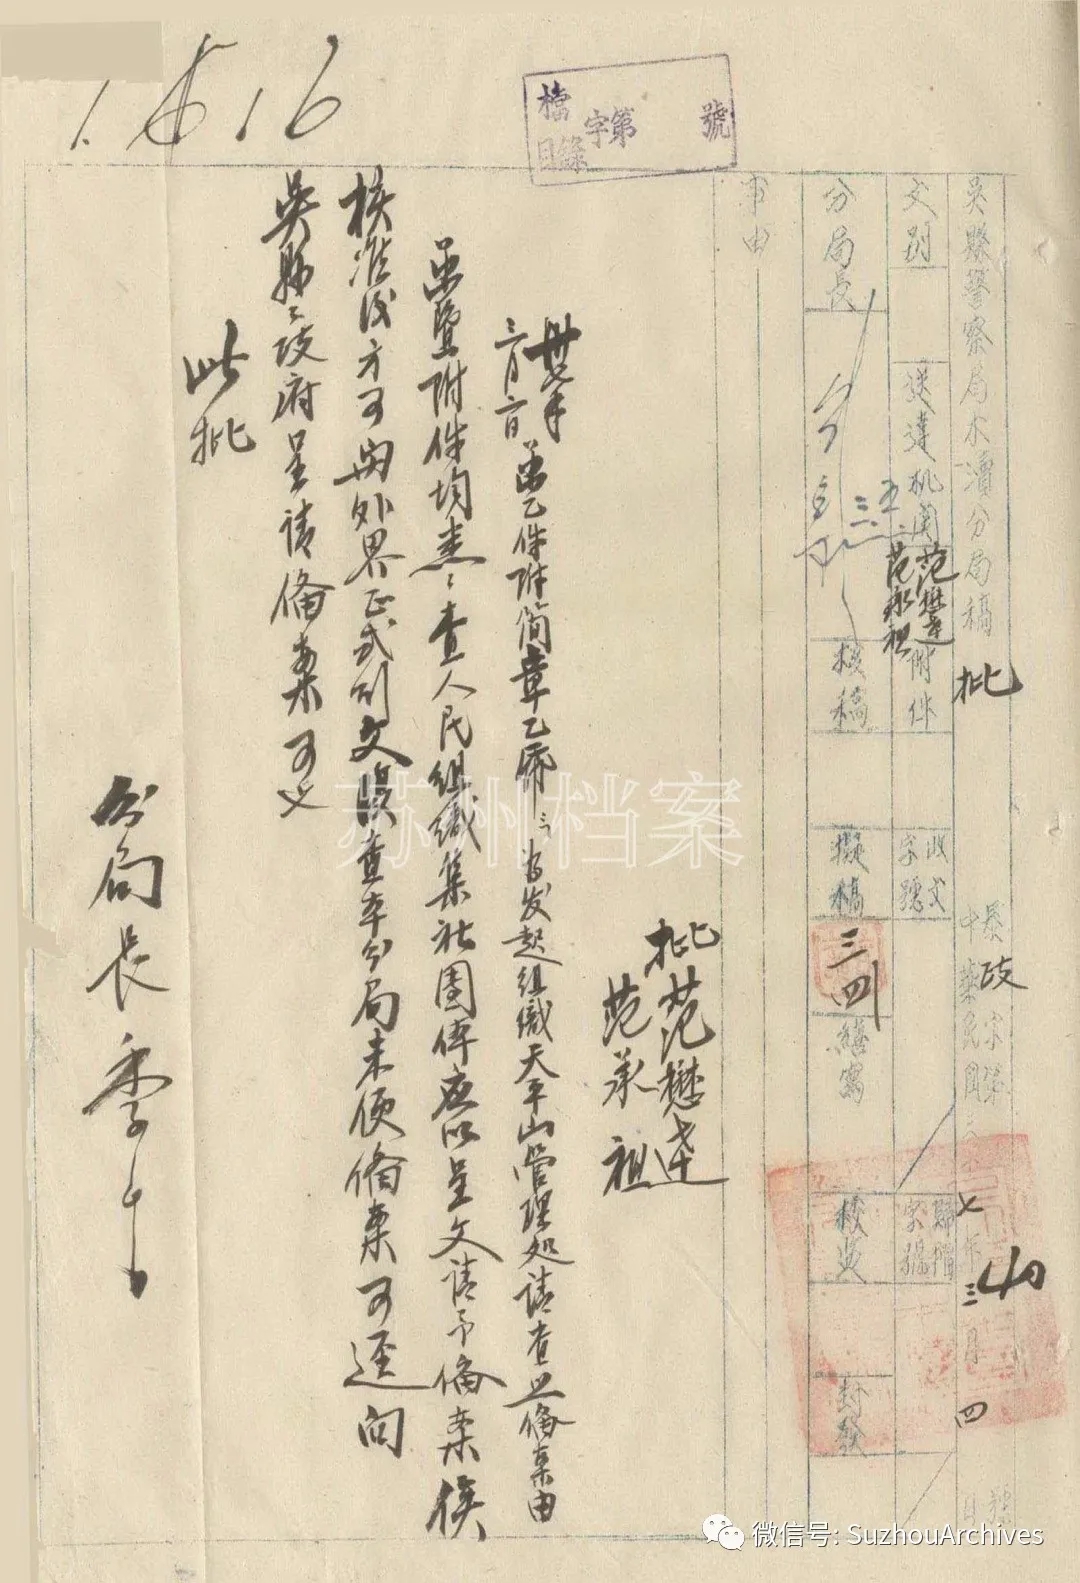 1.6.16
檔目錄 字第 號
吳縣警察局木瀆分局稿
批
政字第 40 號
中華民國三十七年三月四日
文別
送達机關
范懋達
范承祖
附件
收文字號
歸檔字號
分局長
三.五
核稿
擬稿
三四
繕寫
校對
封發
事由
批范懋達
范承祖
卅七年三月二日呈乙件附簡章乙份：為發起組織天平山管理処請查照備案由
呈暨附件均悉：查人民組織集社團体應以呈文請予備案俟
核准後方可與外界正式行文該查本分局未便備案可逕向
吳縣政府呈請備案可也
此批
分局長季
苏州档案
微信号: SuzhouArchives